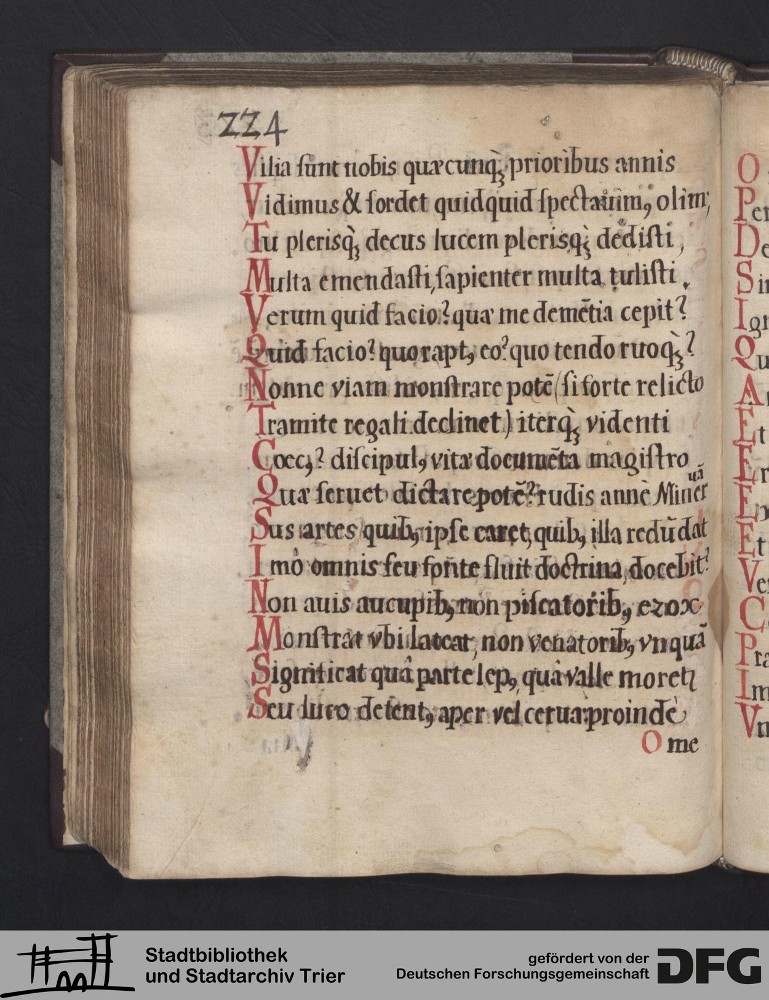 224
Vilia sunt nobis quæcunq̀ꝫ prioribus annis
Vidimus & sordet quidquid spectauimꝰ olim;
Tu plerisqꝫ̀ decus lucem plerisqꝫ̀ dedisti,
Multa emendasti, sapienter multa tulisti.
Verum quid facio? quæ me demētia cepit?
Quid facio? quo raptꝰ eo? quo tendo ruoqꝫ̀?
Nonne viam monstrare potē (si forte relicto
Tramite regali declinet) iterqꝫ̀ videnti
Cœcꝰ? discipulꝰ vitæ documēta magistro
Quæ seruet dictare potē? rudis annè Mineruā
Sus artes quibꝰ ipse caret, quibꝰ illa redūdat
Imò omnis seu fonte fluit doctrina, docebit?
Non auis aucupibꝰ, non piscatoribꝰ, ezox
Monstrat vbi lateat, non venatoribꝰ vnquā
Significat quâ parte lepꝰ, quâ valle moretꝛ
Seu luco detentꝰ aper vel cerua: proindè
O me
O
Per
De
Si
Ign
Qu
A
Et
Er
Ex
Et
Ve
C
Pra
Im
Vn
Stadtbibliothek
und Stadtarchiv Trier
gefördert von der
Deutschen Forschungsgemeinschaft
DFG